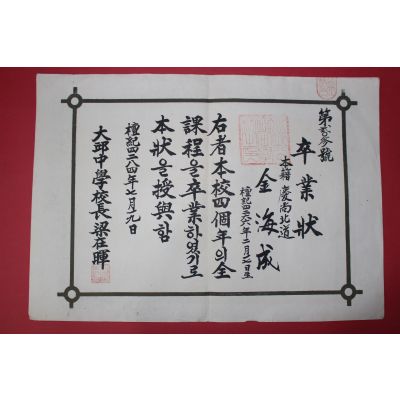 第壹參號
卒業狀
本籍 慶尙北道
金海成
檀紀四二六六年二月七日生
右者本校四個年의全
課程을卒業하였기로
本狀을授與함
檀紀四二八四年七月九日
大邱中學校長梁在暉